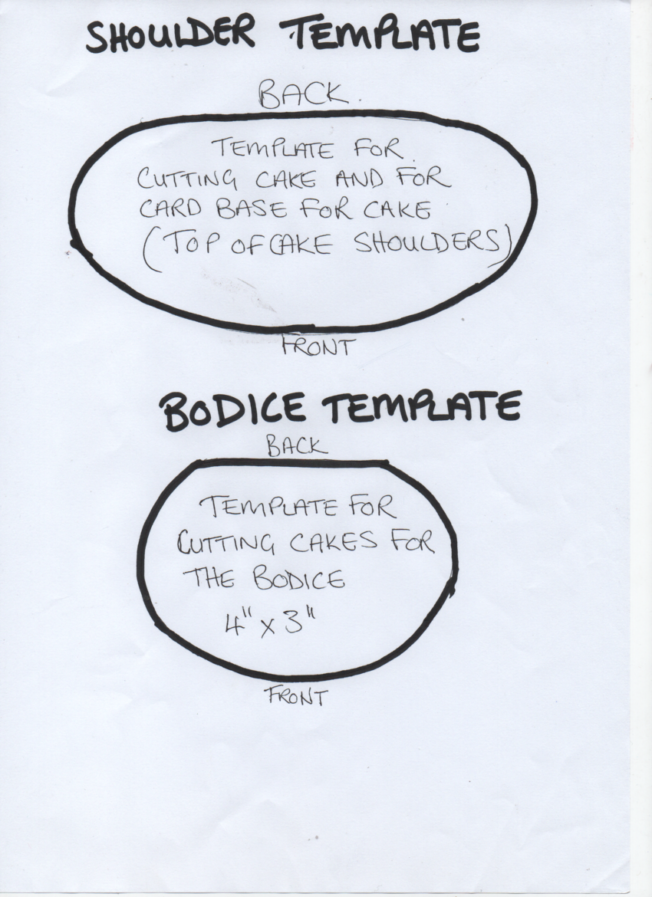 SHOULDER TEMPLATE
BACK.
TEMPLATE FOR
CUTTING CAKE AND FOR
CARD BASE FOR CAKE
(TOP OF CAKE SHOULDERS)
FRONT
BODICE TEMPLATE
BACK
TEMPLATE FOR
CUTTING CAKES FOR
THE BODICE
4" x 3"
FRONT